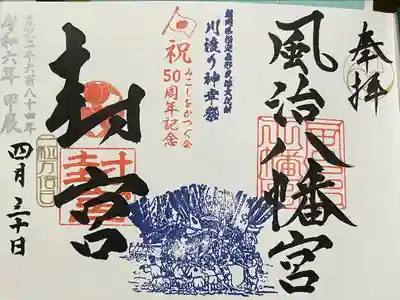 奉拝
風治八幡宮
福岡県指定無形民俗文化財
川渡り神幸祭
祝
みこしをかつぐ会
50周年記念
封宮
皇紀二千六百八十四年
令和六年 甲辰
四月三十日